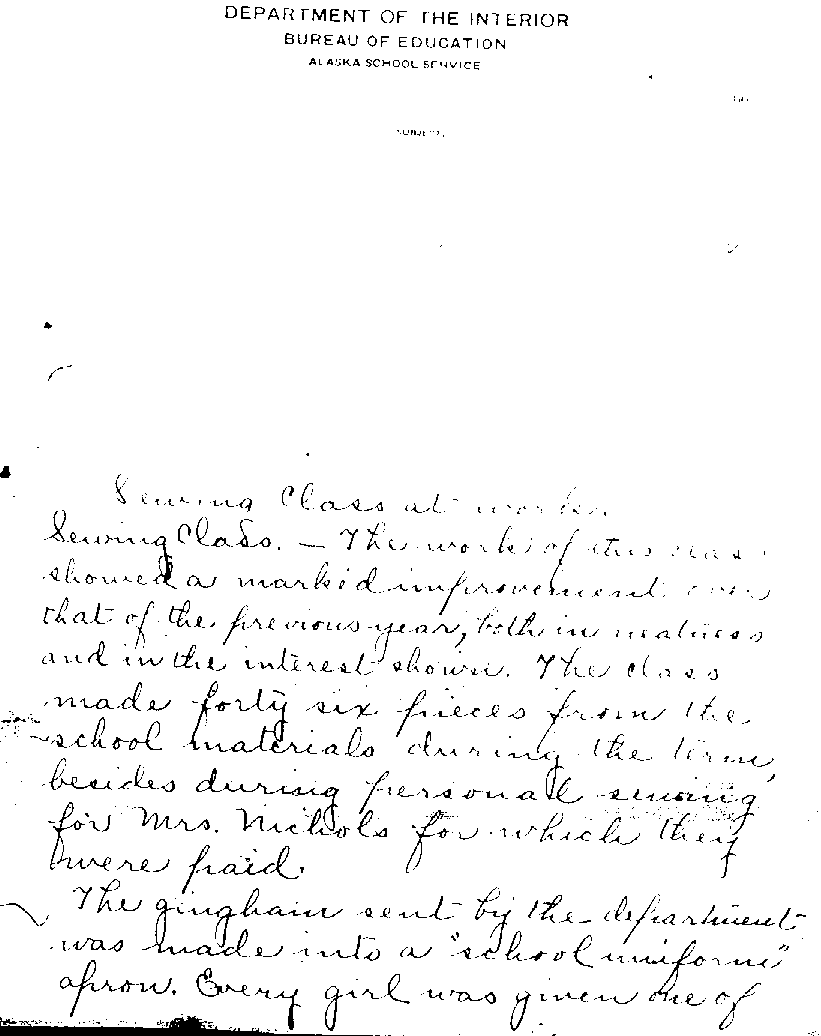 DEPARTMENT OF THE INTERIOR
BUREAU OF EDUCATION
ALASKA SCHOOL SERVICE
SUBJECT:
Sewing Class at work.
Sewing Class. — The work of this class
showed a marked improvement over
that of the previous year, both in neatness
and in the interest shown. The class
made forty six pieces from the
school materials during the term,
besides during personal sewing
for Mrs. Nichols for which they
were paid.
The gingham sent by the department
was made into a "school uniform"
apron. Every girl was given one of